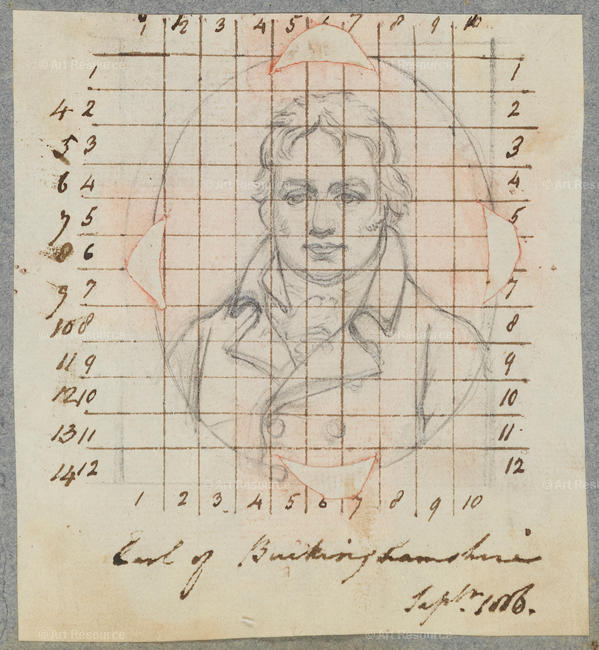 1 2 3 4 5 6 7 8 9 10
1 1
4 2 2
5 3 3
6 4 4
7 5 5
8 6
9 7 7
10 8 8
11 9 9
12 10 10
13 11 11
14 12 12
1 2 3 4 5 6 7 8 9 10
Earl of Buckinghamshire
Septr. 1806.
© Art Resource